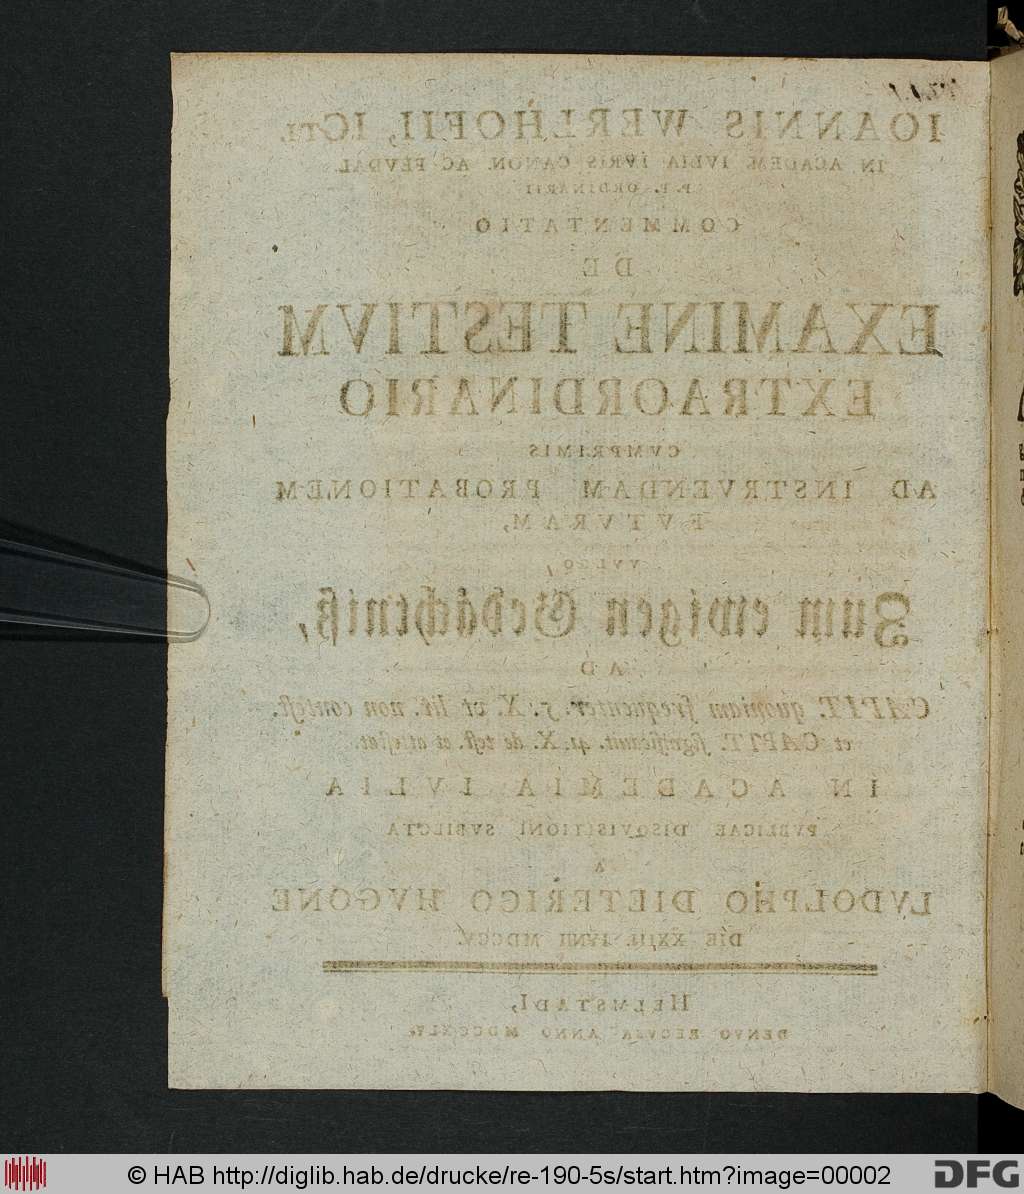 IOANNIS WERLHOFII, ICTI.
IN ACADEM. IVLIA IVRIS CANON. AC FEVDAL.
P. P. ORDINARII
COMMENTATIO
DE
EXAMINE TESTIVM
EXTRAORDINARIO
CVMPRIMIS
AD INSTRVENDAM PROBATIONEM
FVTVRAM,
VVLGO,
Zum ewigen Gedächtniß,
AD
CAPIT. quoniam frequenter. 5. X. vt lit. non contest.
et CAPIT. significauit. 41. X. de test. et attestat.
IN ACADEMIA IVLIA
PVBLICAE DISQVISITIONI SVBIECTA
A
LVDOLPHO DIETERICO HVGONE
DIE XXIII. IVNII MDCCV.
HELMSTADI,
DENVO RECVSA ANNO MDCCXLV.
© HAB http://diglib.hab.de/drucke/re-190-5s/start.htm?image=00002
DFG